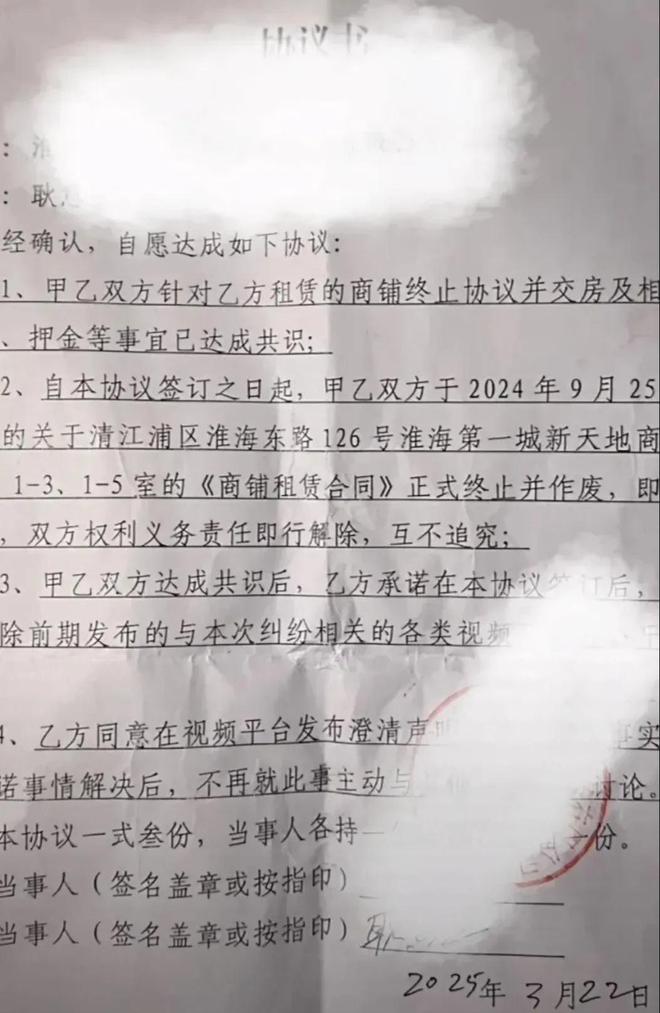 协议书
：淮
：耿
经确认，自愿达成如下协议：
1、甲乙双方针对乙方租赁的商铺终止协议并交房及相
、押金等事宜已达成共识；
2、自本协议签订之日起，甲乙双方于 2024 年 9 月 25
的关于清江浦区淮海东路 126 号淮海第一城新天地商
1-3、1-5 室的《商铺租赁合同》正式终止并作废，即
，双方权利义务责任即行解除，互不追究；
3、甲乙双方达成共识后，乙方承诺在本协议签订后，
除前期发布的与本次纠纷相关的各类视频
4、乙方同意在视频平台发布澄清声 事实
诺事情解决后，不再就此事主动与 讨论。
本协议一式叁份，当事人各持一 一份。
当事人（签名盖章或按指印）
当事人（签名盖章或按指印）耿
2025年 3月22日